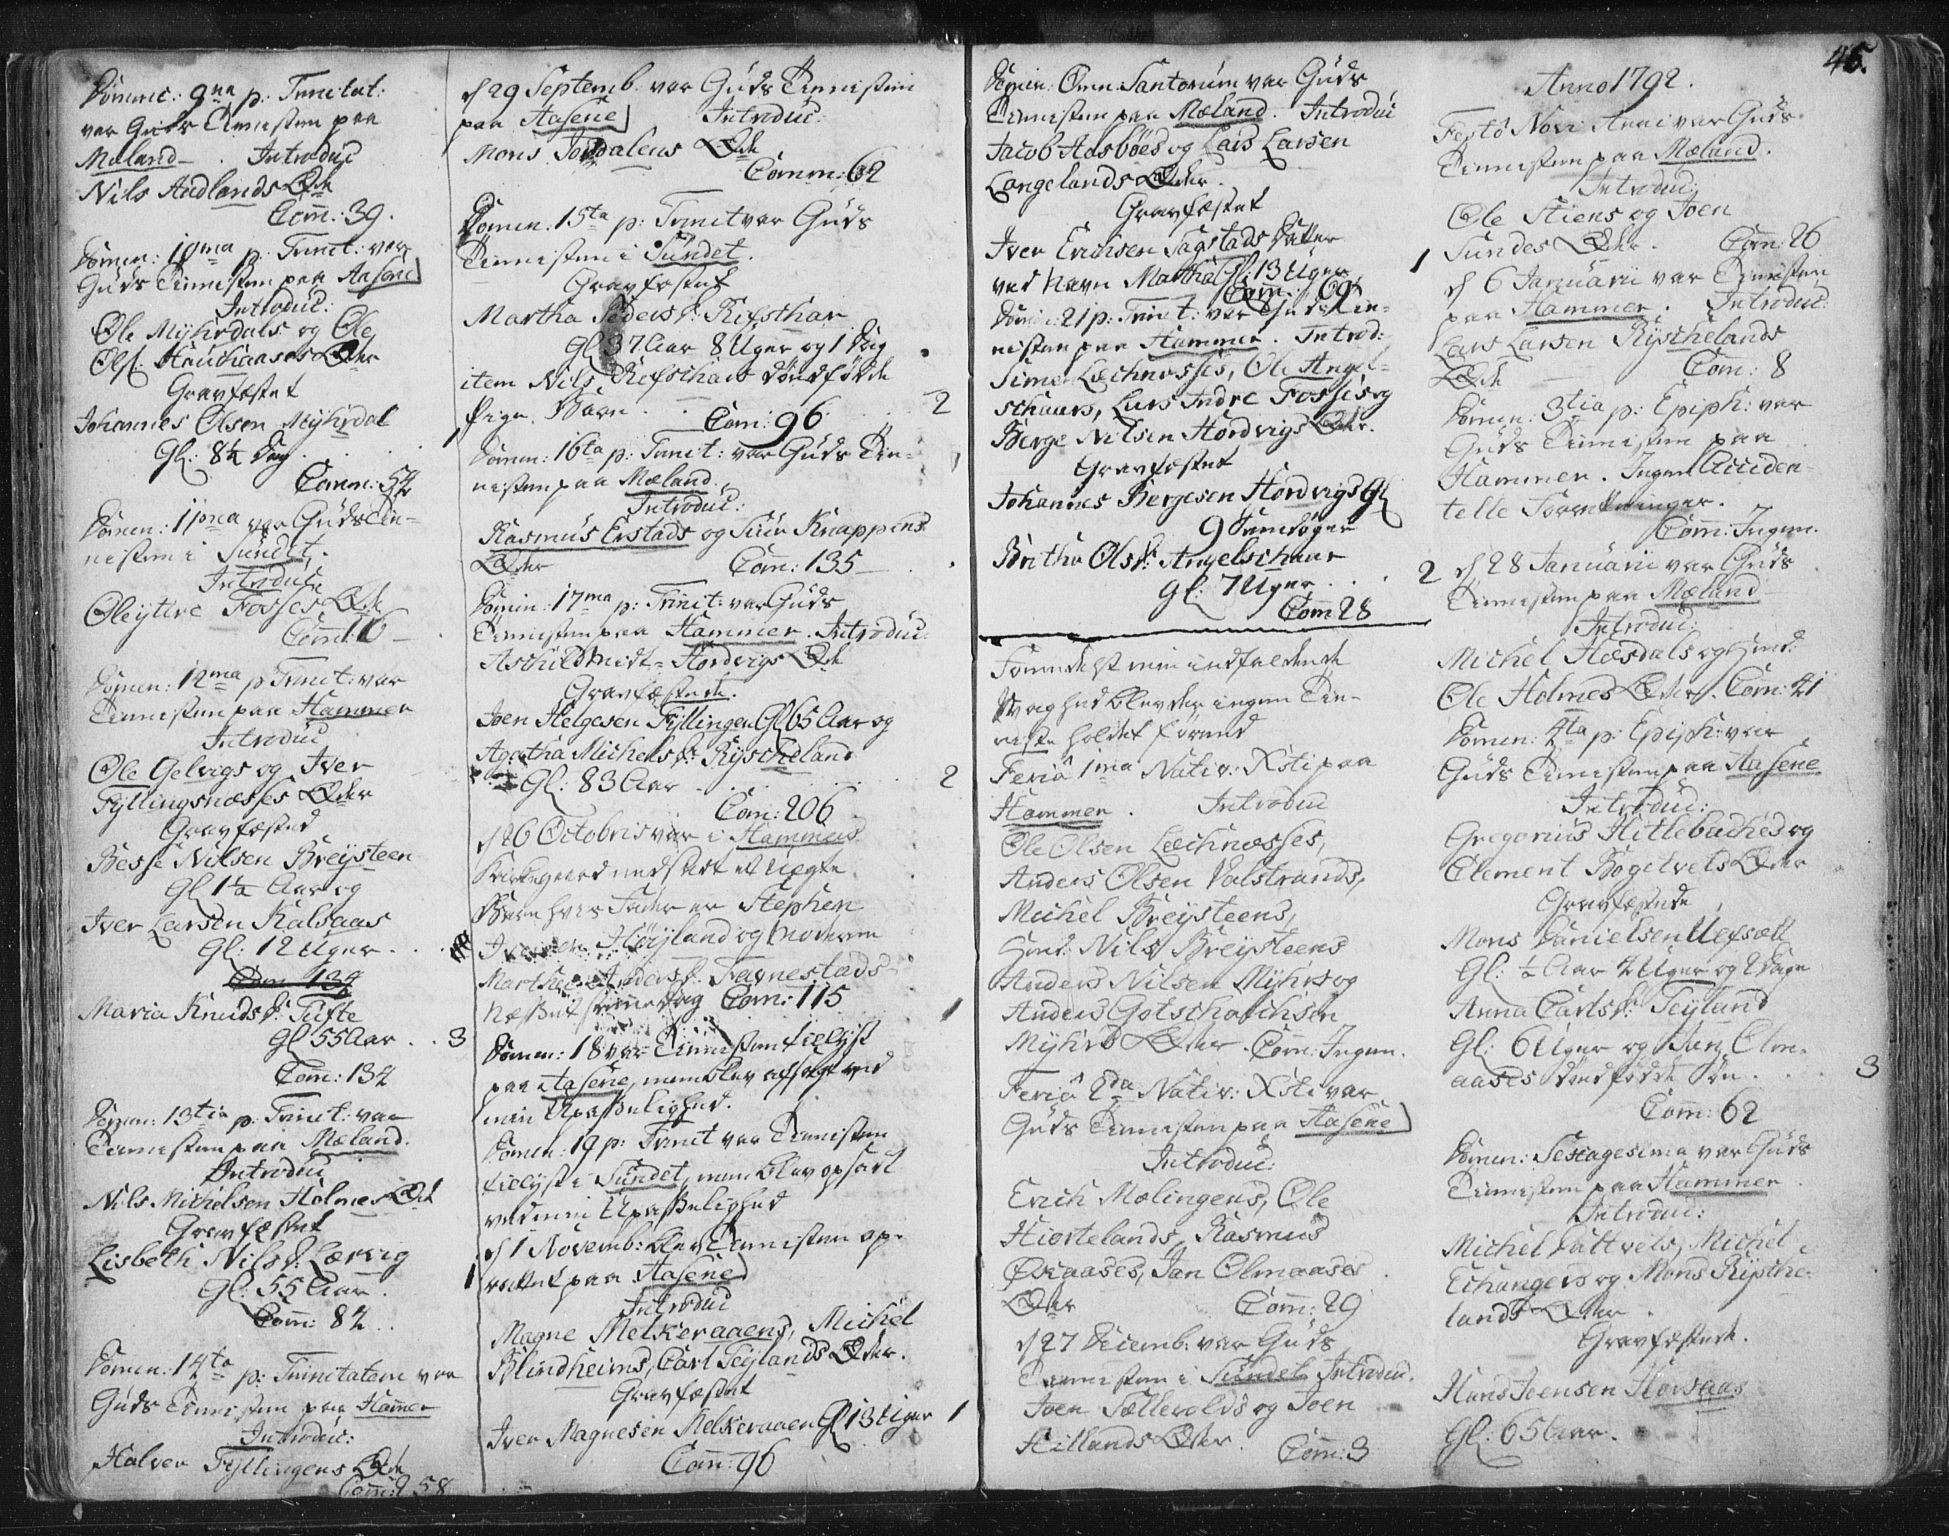 Domin: 9na p: Trinitat:
var Guds Tienisten paa
Mæland. Introduc
Nils Audlands Qde
Com: 39.
Domin: 10ma p: Trinit: var
Guds Tienisten paa Aasene
Introduc:
Ole Myhrdals og Ole
Ols: Qder
Gravfæstet
Johannes Olsen Myhrdal
Gl: 8½ Dag
Comm: 54
Domin: 11ma var Guds Tie-
nisten i Sundet.
Introduc
Ole ytre Fosses Qde
Com: 16
Domin: 12ma p Trinit: var
Tienisten paa Hammer
Introduc
Ole Gelvigs og Iver
Fyllingsnæsses Qder
Gravfæsted
Besse Nilsen Breysteen
Gl 1½ Aar og
Iver Larsen Kalsaas
Gl: 12 Uger
Com 134
Maria Knuds D: Tufte
Gl 55 Aar . . 3
Com: 134
Domin: 13tia p: Trinit: var
Tienisten paa Mæland.
Introduc
Nils Michelsen Holmes Qde
Gravfæstet
Lisbeth Nils D: Lærvig
Gl: 55 Aar. 1
Com: 84
Domin: 14ta p: Trinitatem var
Guds Tienisten paa Hamer
Introduc:
Halvor Fyllingens Qde
Com: 258
d 29 Septemb. var Guds Tienisten
paa Aasene Introduc:
Mons Jordalens Qde
Comm: 62
Domin: 15ta p: Trinit var Guds
Tienisten i Sundet.
Gravfæstet
Martha Peders D: Risthar
Gl 37 Aar 8 Uger og 1 Dag
item Nils dødfødde
Pige Barn . . 2
Com: 96
Domin: 16ta p: Trinit: var Guds Tie-
nisten paa Mæland.
Introduc:
Rasmus Erstads og Siur Knappens
Qder Com: 135
Domin: 17ma p: Trinit: var Guds
Tienisten paa Hammer. Introduc:
Hordvigs Qde
Gravfæstede.
Joen Helgesen Fyllingen Gl 65 Aar og
Agatha Michels D: Rystheland
Gl: 83 Aar . . 2
Com: 206
d 26 Octobris var i Hammers
Kirkegaard nedsadt et uægte
Barn hvis Fader er Stephen
Høyland og Moderen
Martha Anders D: Farnestads
Com: 115
Domin: 18 var Tienisten tillyst
paa Aasene, men blev afsagt ved
min Upasselighed.
Domin: 19 p: Trinit var Tienisten
tillyst i Sundet, men blev opsadt
ved min Upasselighed
d 1 Novemb: blev Tienisten op-
rettet paa Aasene
Introduc
Magne Melkeraaens, Michel
Blindheims, Carl Teylands Qder.
Gravfæstet
Iver Magnesen Melkeraaen Gl 13 Uger 1
Com: 96
Domin: Omn. Santorum var Guds
Tienisten paa Mæland. Introduc
Jacob Aasbøes og Lars Larsen
Langelands Qder.
Gravfæstet
Iver Erichsen Sagstads Datter
ved Navn Martha Gl: 13 Uger 1
Com: 69
Domin: 21 p: Trinit: var Guds Tie-
nisten paa Hammer. Introd:
Simen Lechnæsses, Ole Angel-
schaars, Lars Indre Fosses og
Berge Nilsen Hordvigs Qder.
Gravfæstet
Johannes Bergesen Hordvigs Gl
9 Samdøger
Britha Ols D: Angelschaar
Gl: 7 Uger . . 2
Com 28
Formedelst min indfaldende
Svaghed blev der ingen Tie-
niste holdet førend
Feria 1ma Nativ: Xsti paa
Hammer. Introduc
Ole Olsen Lechnæsses,
Anders Olsen Valstrands,
Michel Breysteens,
Hmd: Nils Breysteens
Anders Nilsen Myhrs og
Anders Gotschalchsen
Myhrs Qder. Com: Ingen.
Feria 2da Nativ: Xsti var
Guds Tienisten paa Aasene
Introduc:
Erich Mælingens, Ole
Hiortelands, Rasmus
Øvraases, Jan Olmaases
Qder Com: 29
d 27 Decemb: var Guds
Tienisten i Sundet. Introduc.
Joen Sættevolds og Joen
Hillands Qder. Com: 3
46.
Anno 1792.
Festo Novi Anni var Guds
Tienisten paa Mæland.
Introduc:
Ole Stiens og Joen
Sundes Qder. Com: 26
d 6 Januarii var Tienisten
paa Hammer. Introduc:
Lars Larsen Rysthelands
Qde Com: 8
Domin: 3tia p: Epiph: var
Guds Tienisten paa
Hammer. Ingen Acciden-
telle Forretninger.
Com: Ingen.
d 28 Januarii var Guds
Tienisten paa Mæland
Introduc:
Michel Hæsdals og Hmd:
Ole Holmes Qder. Com: 41
Domin: 4ta p: Epiph: var
Guds Tienisten paa Aasene
Introduc:
Gregorius Hitlebaches og
Clement Bøgetvets Qder
Gravfæstede
Mons Danielsen
Gl: ½ Aar 4 Uger og 2 Dage
Anna Carls D: Teyland
Gl: 6 Uger og Jan Olm-
aases dødfødde Søn . . . 3
Com: 62
Domin: Sexagesima var Guds
Tienisten paa Hammer
Introduc:
Michel Dattvets, Michel
Echangers og Mons Rysthe-
lands Qder.
Gravfæstede.
Hans Joensen Horsaas
Gl: 65 Aar.